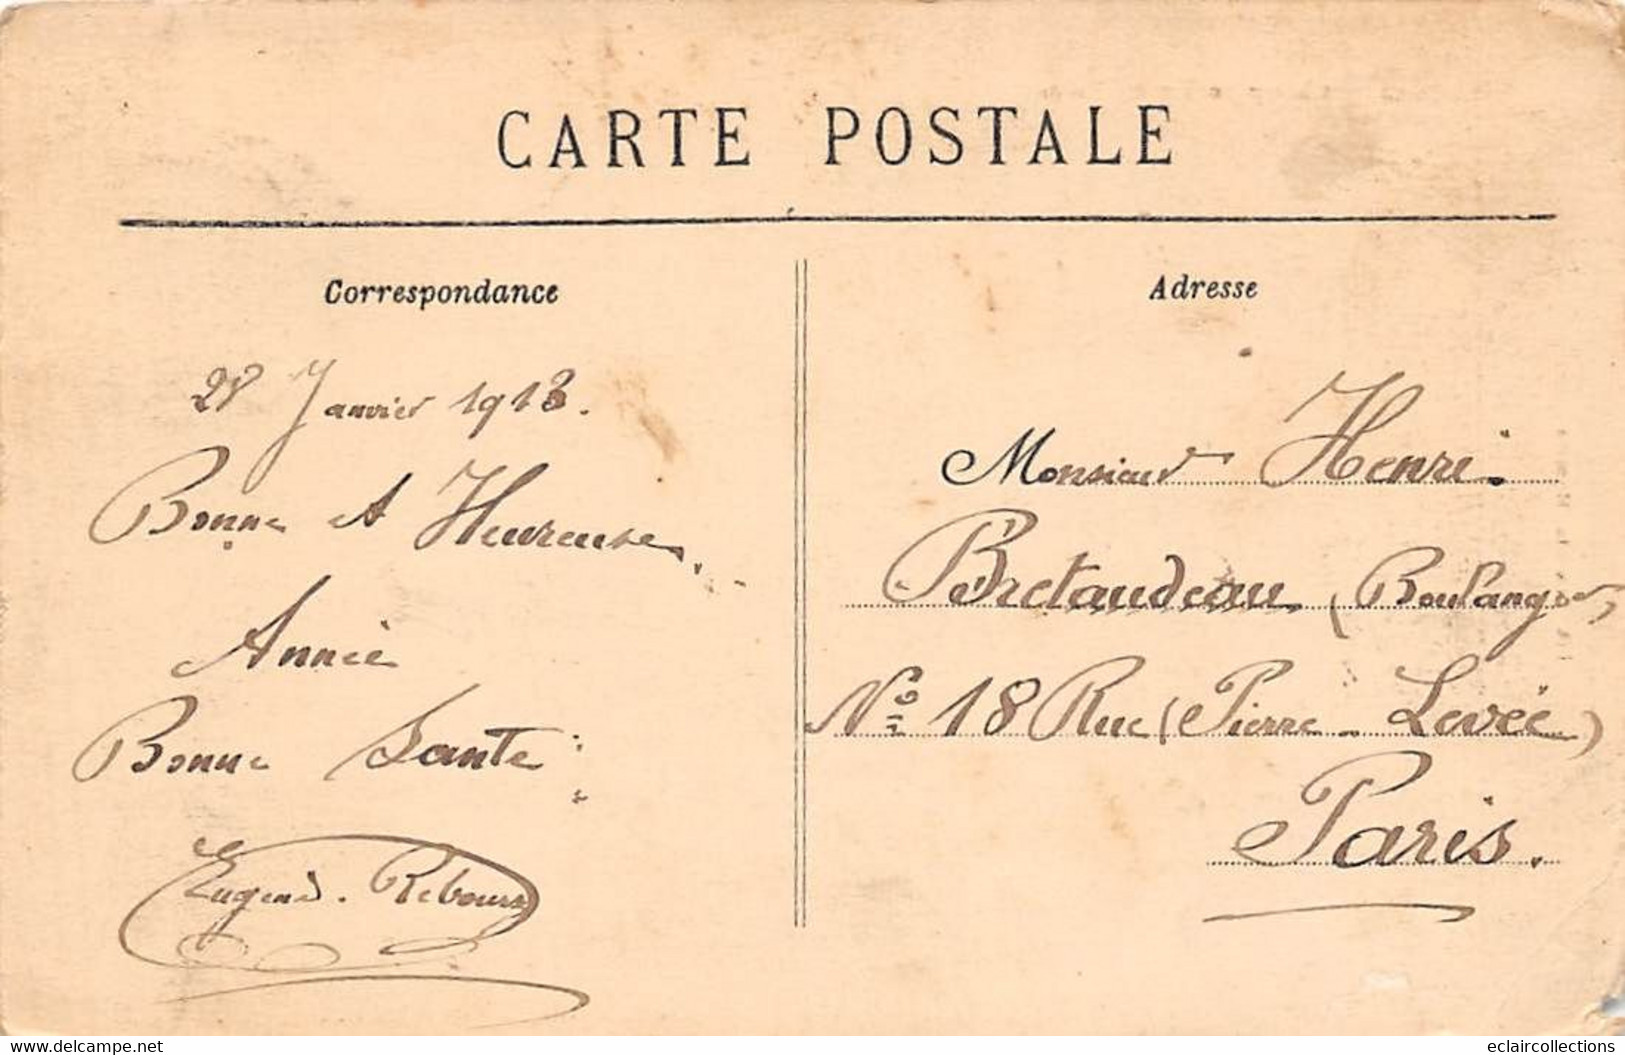 CARTE POSTALE
Correspondance
28 Janvier 1913.
Bonne et Heureuse
Année
Bonne Santé
Eugène. Rebours
Adresse
Monsieur Henri
Bretaudeau (Boulanger)
No 18 Rue (Pierre-Levée)
Paris.
www.delcampe.net
eclaircollections